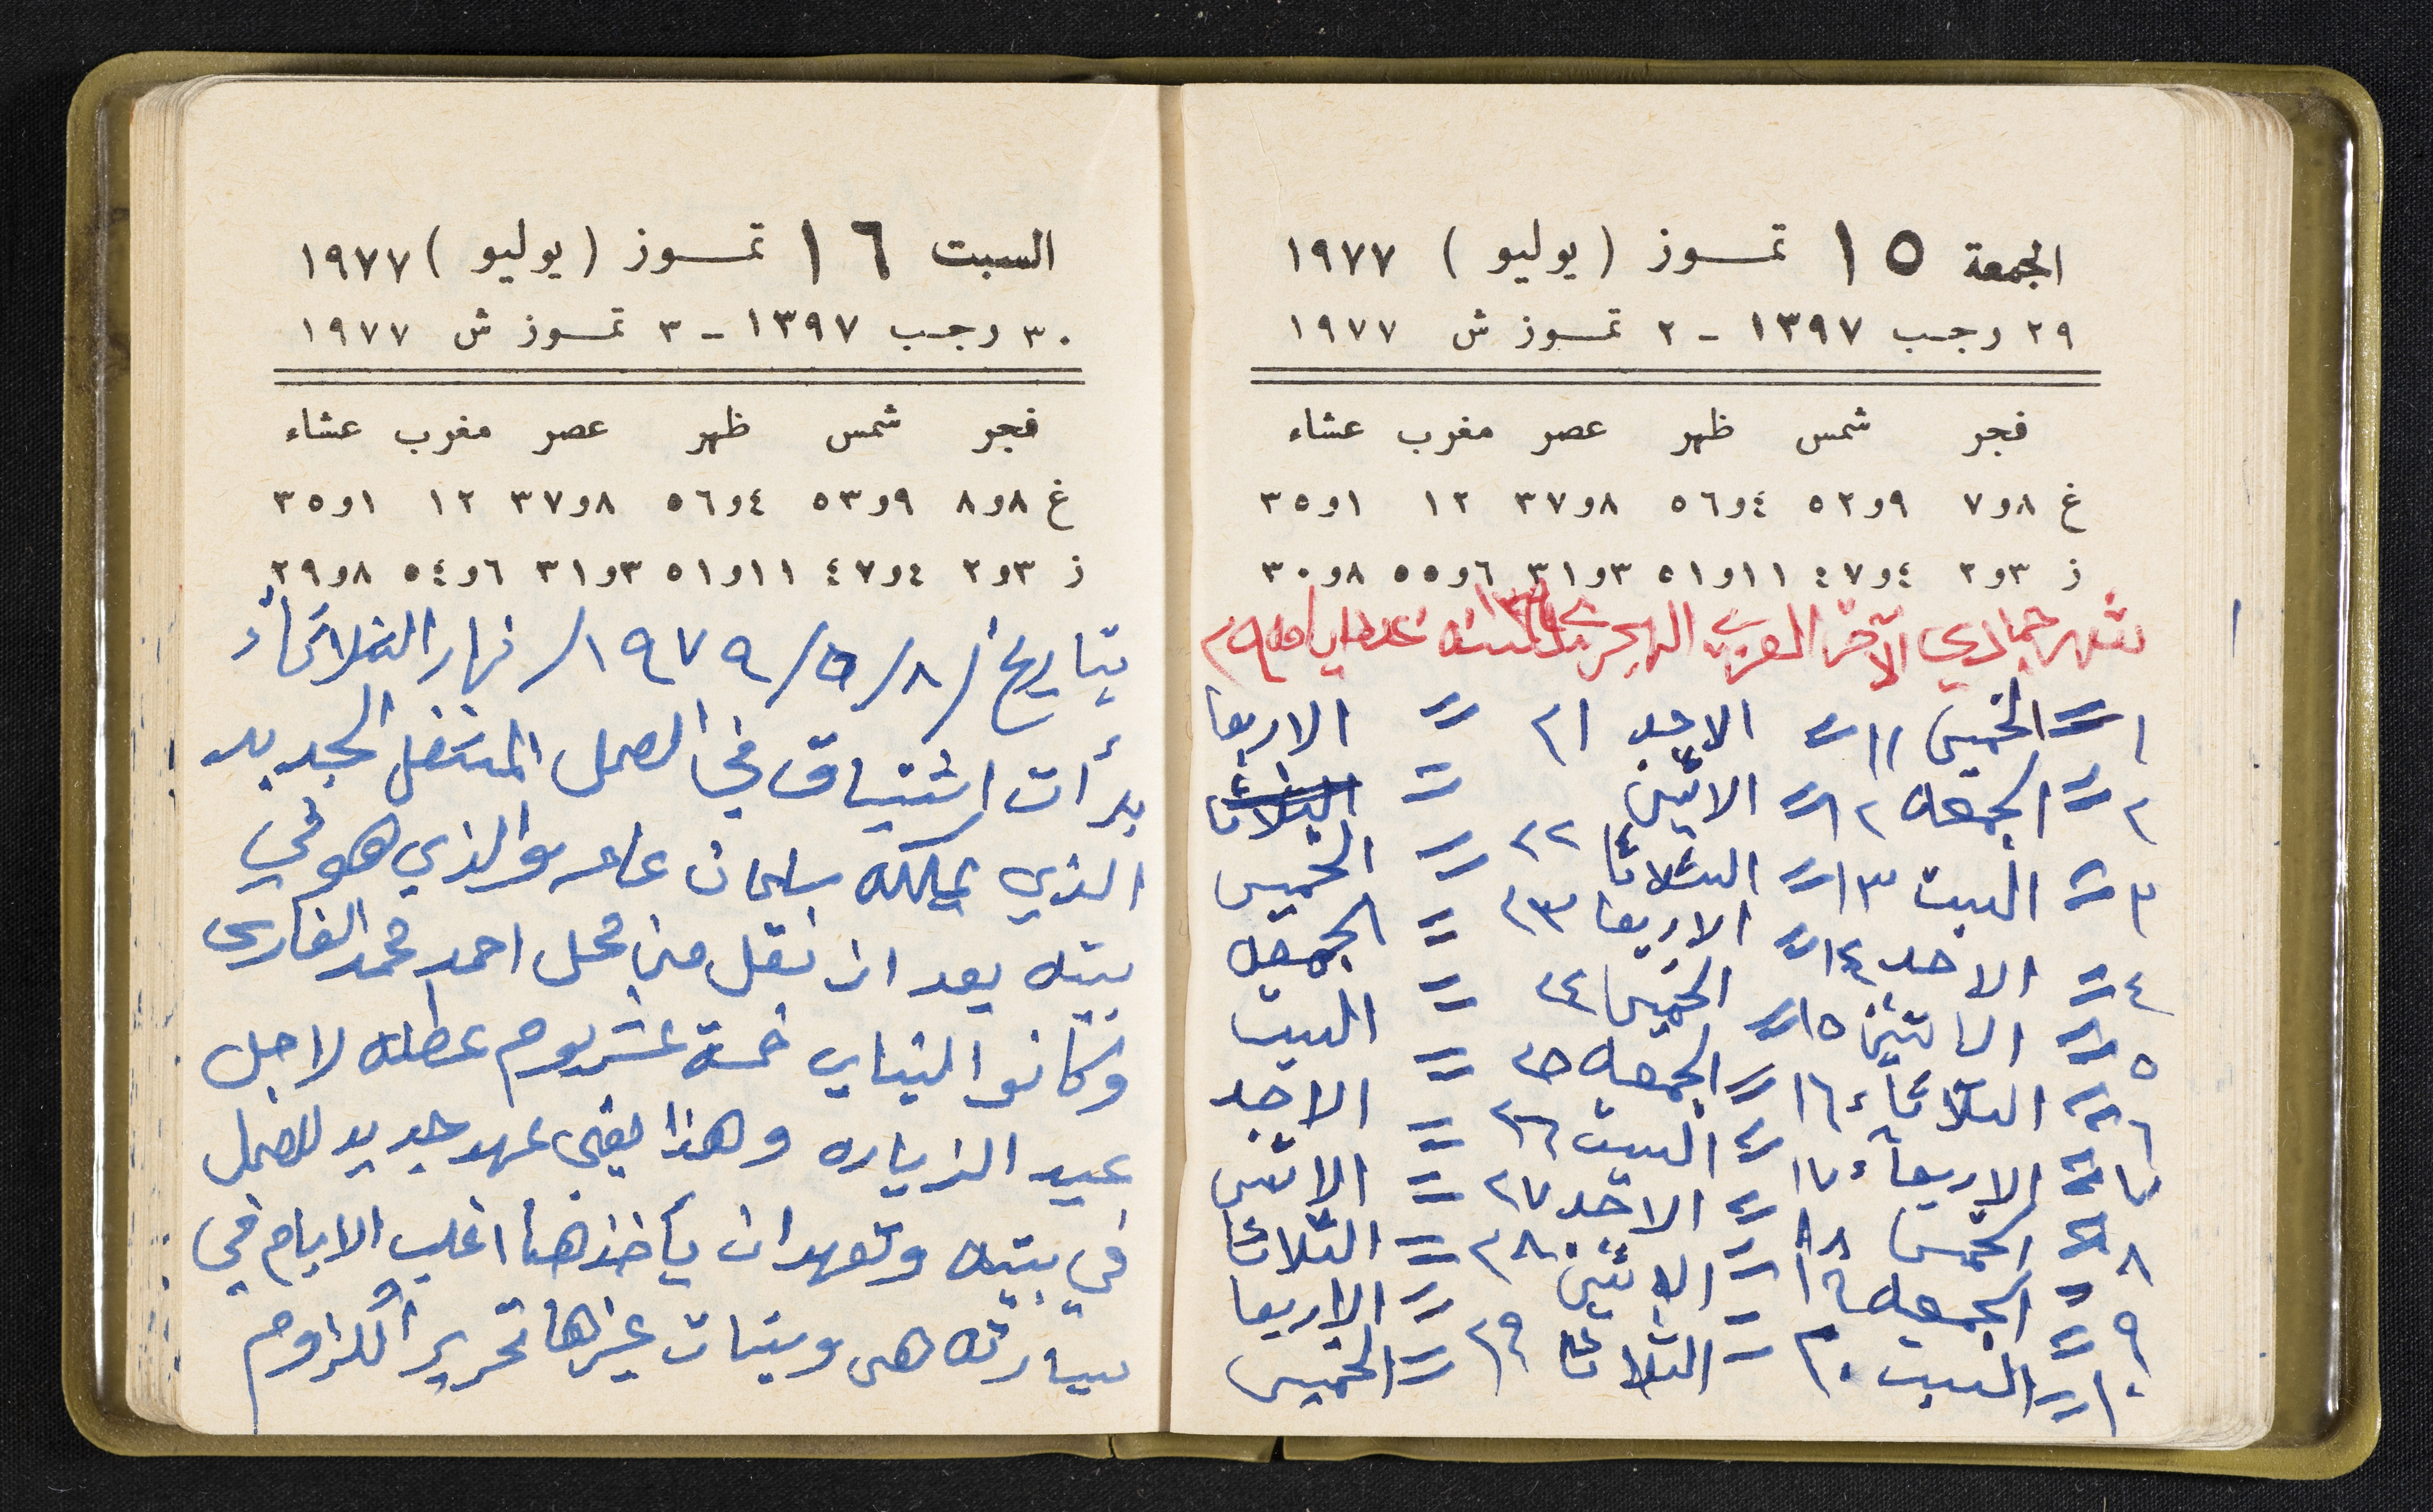 الجمعة ١٥ تمـوز ( يوليو ) ١٩٧٧
٢٩ رجب ١٣٩٧ - ٢ تمـوز ش ١٩٧٧
فجر شمس ظهر عصر مغرب عشاء
غ ٨و٧ ٩و٥٢ ٤و٥٦ ٨و٣٧ ١٢ ١و٣٥
ز ٣و٢ ٤و٤٧ ١١و٥١ ٣و٣١ ٦و٥٥ ٨و٣٠
شهر جمادي الآخر العربي الهجري ٢٩
١ = الخميس ١١ = الاحد ٢١ = الاربعا
٢ = الجمعه ١٢ = الاثنين = الثلاثا
٣ = السبت ١٣ = الثلاثا ٢٢ = الخميس
٤ = الاحد ١٤ = الاربعا ٢٣ = الجمعه
٥ = الاثنين ١٥ = الخميس ٢٤ = السبت
٦ = الثلاثاء ١٦ = الجمعه ٢٥ = الاحد
٧ = الاربعاء ١٧ = السبت ٢٦ = الاثنين
٨ = الخميس ١٨ = الاحد ٢٧ = الثلاثا
٩ = الجمعه ١٩ = الاثنين ٢٨ = الاربعا
١٠ = السبت ٢٠ = الثلاثا ٢٩ = الخميس
السبت ١٦ تمـوز ( يوليو ) ١٩٧٧
٣٠ رجب ١٣٩٧ - ٣ تمـوز ش ١٩٧٧
فجر شمس ظهر عصر مغرب عشاء
غ ٨و٨ ٩و٥٣ ٤و٥٦ ٨و٣٧ ١٢ ١و٣٥
ز ٣و٢ ٤و٤٧ ١١و٥١ ٣و٣١ ٦و٥٤ ٨و٢٩
بتاريخ / ٨/ ٥/ ١٩٧٩/ نهار الثلاثاء
بدأت اشتياق في العمل المشغل الجديد
الذي يملكه سلمان عامر والذي هو في
بيته بعد ان نقل من محل احمد محمد الفارس
وكانوا البنات خمسة عشر يوم عطله لاجل
عيد الزياره وهذا يعني عهد جديد للعمل
في بيته وتعهد ان يأخذهنا اغلب الايام في
سيارته هي وبنات غيرها تحريراً للزوم